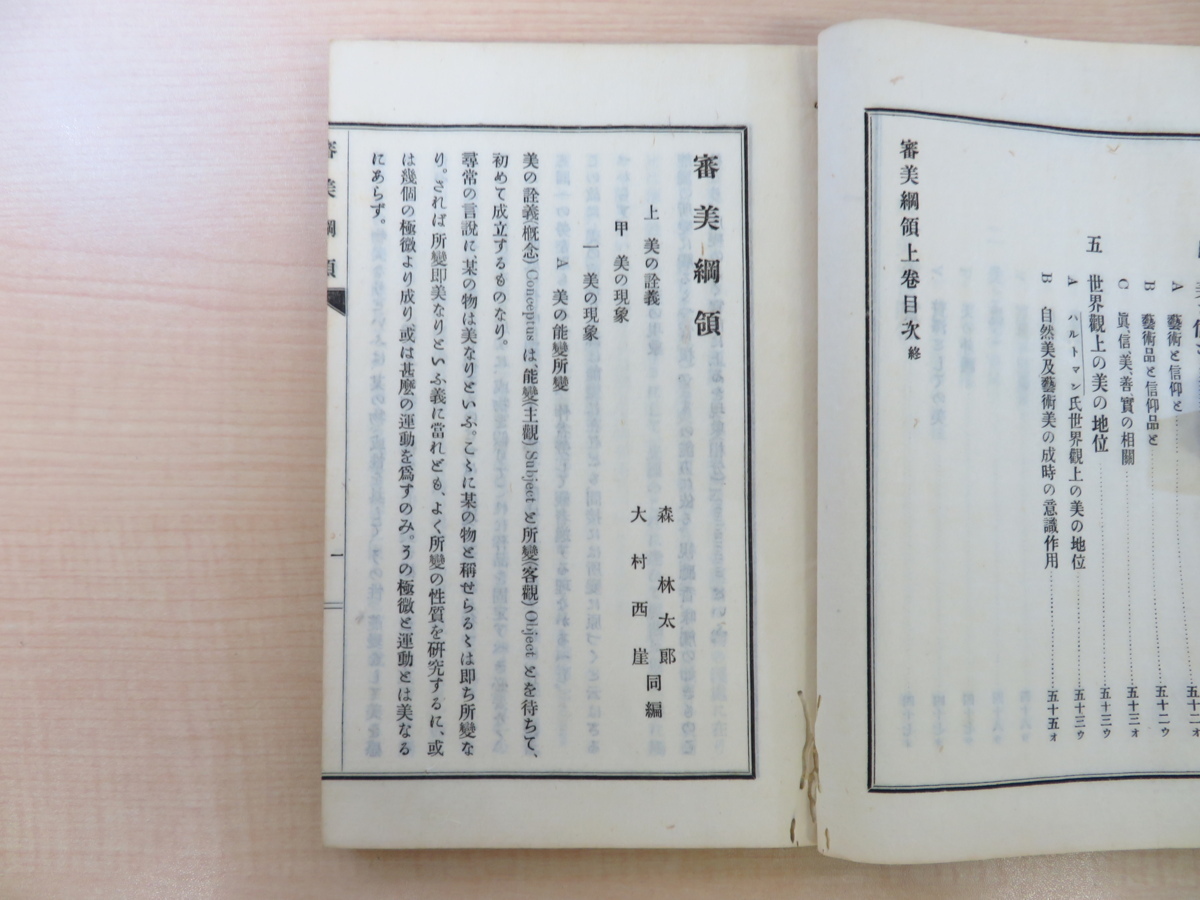 A 藝術と信仰と
B 藝術品と信仰品と……五十二ゥ
C 眞、信、美、善、實の相關……五十三ォ
五 世界觀上の美の地位……五十三ゥ
A ハルトマン氏世界觀上の美の地位……五十三ゥ
B 自然美及藝術美の成時の意識作用……五十五ォ
審美綱領上卷目次 終
審美綱領
森林太郞
大村西崖 同編
上 美の詮義
甲 美の現象
一 美の現象
A 美の能變所變
美の詮義(概念)Conceptus は、能變(主觀)Subject と所變(客觀)Object とを待ちて、
初めて成立するものなり。
尋常の言說に、某の物は美なりといふ。こゝに某の物と稱せらるゝは即ち所變な
り。されば所變即美なりといふ義に當れども、よく所變の性質を研究するに、或
は幾個の極微より成り、或は甚麼の運動を爲すのみ。その極微と運動とは美なる
にあらず。
審美綱領
一